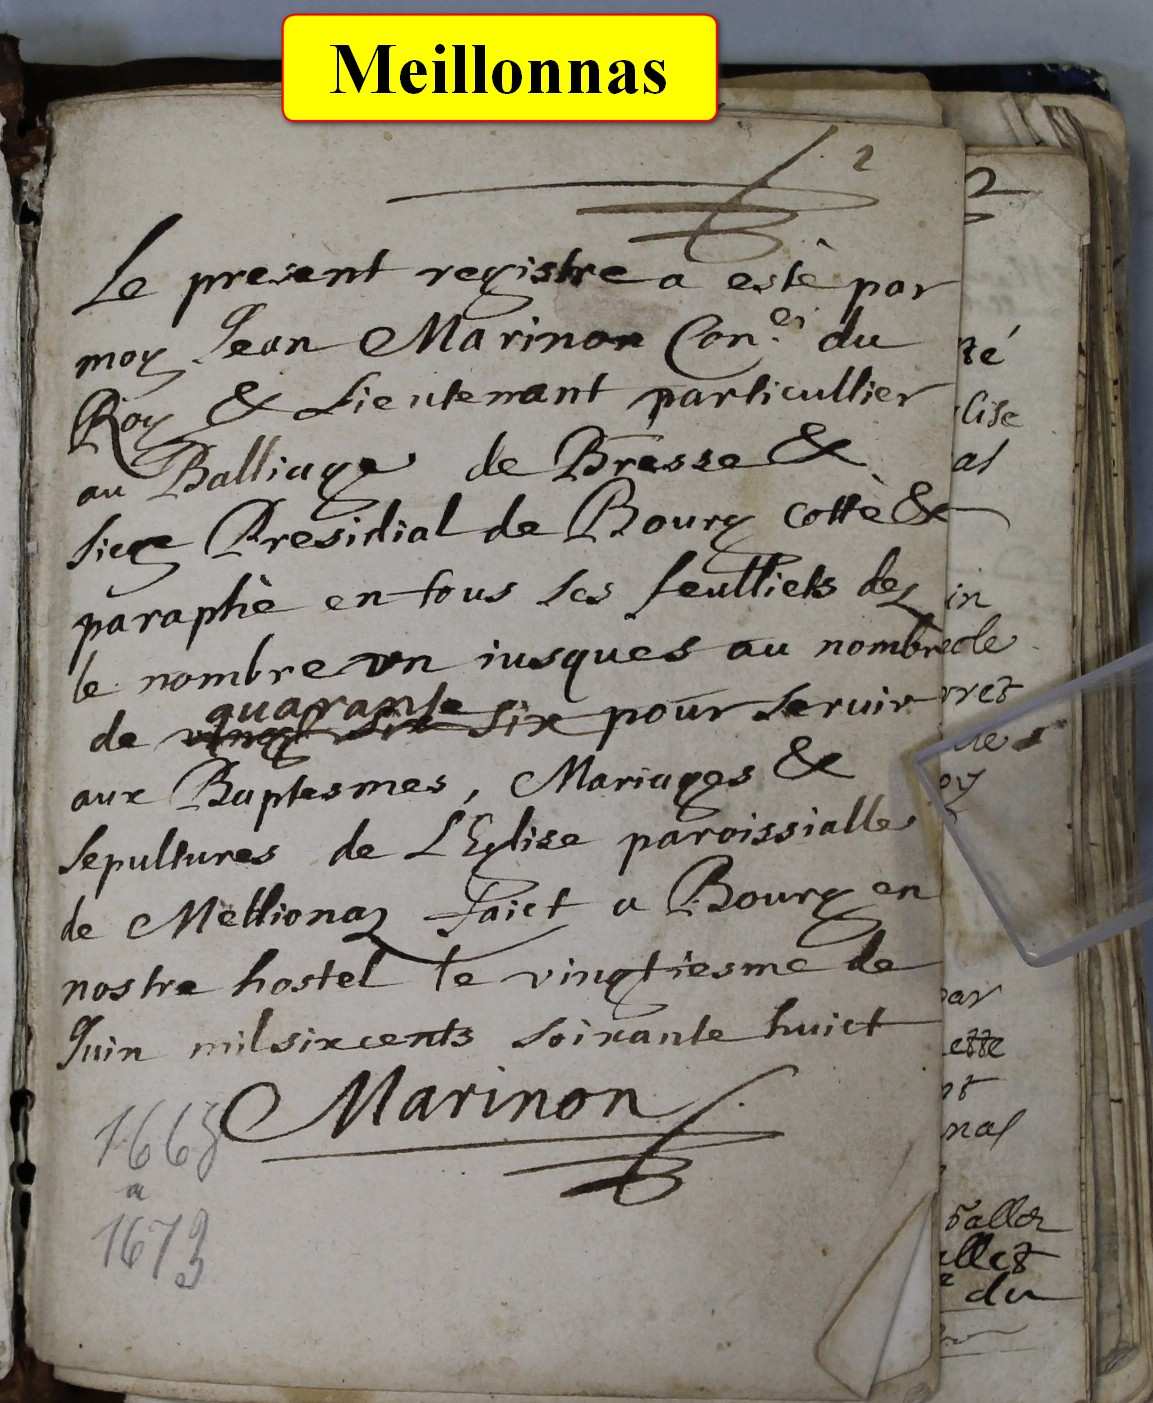 Meillonnas
2
Le present registre a estè par
moy Jean Marinon Con.er du
Roy & Lieutenant particullier
au Balliage de Bresse &
siege Presidial de Bourg cottè &
paraphè en tous ses feulliets dez
le nombre vn iusques au nombre
quarante
de vingt six six pour seruir
aux Baptesmes, Mariages &
sepultures de L'Eglise paroissialle
de Mellionaz faict a Bourg en
nostre hostel le vingtiesme de
Juin mil six cents soixante huict
Marinon
1668
a
1673
2
né
lise
al
in
ole
par
ette
nal
allet
du